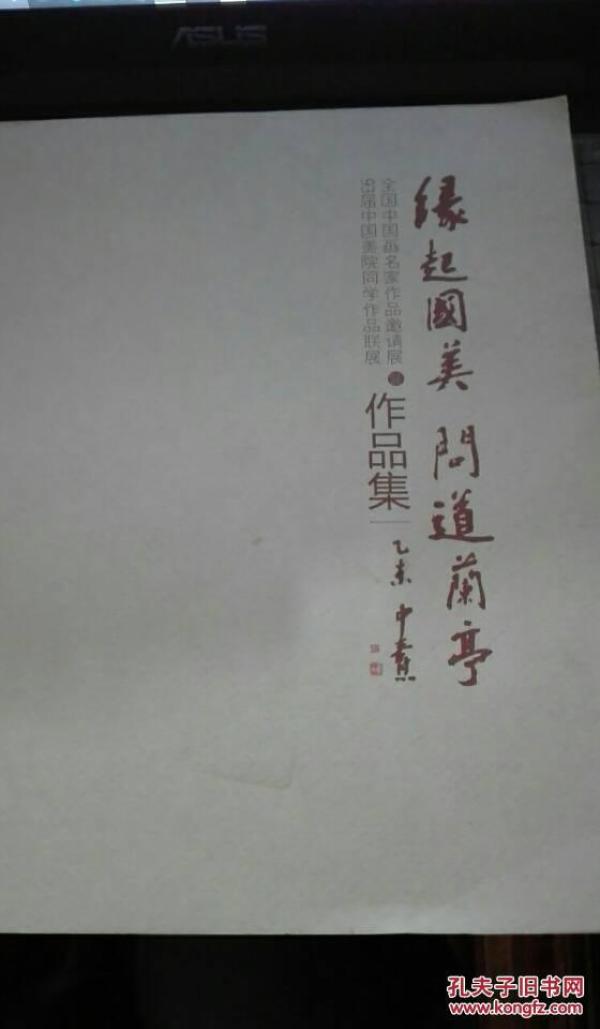 ASUS
緣起國美 問道蘭亭
全国中国画名家作品邀请展
届中国美院同学作品联展
作品集
乙未 中
孔夫子旧书网
www.kongfz.com